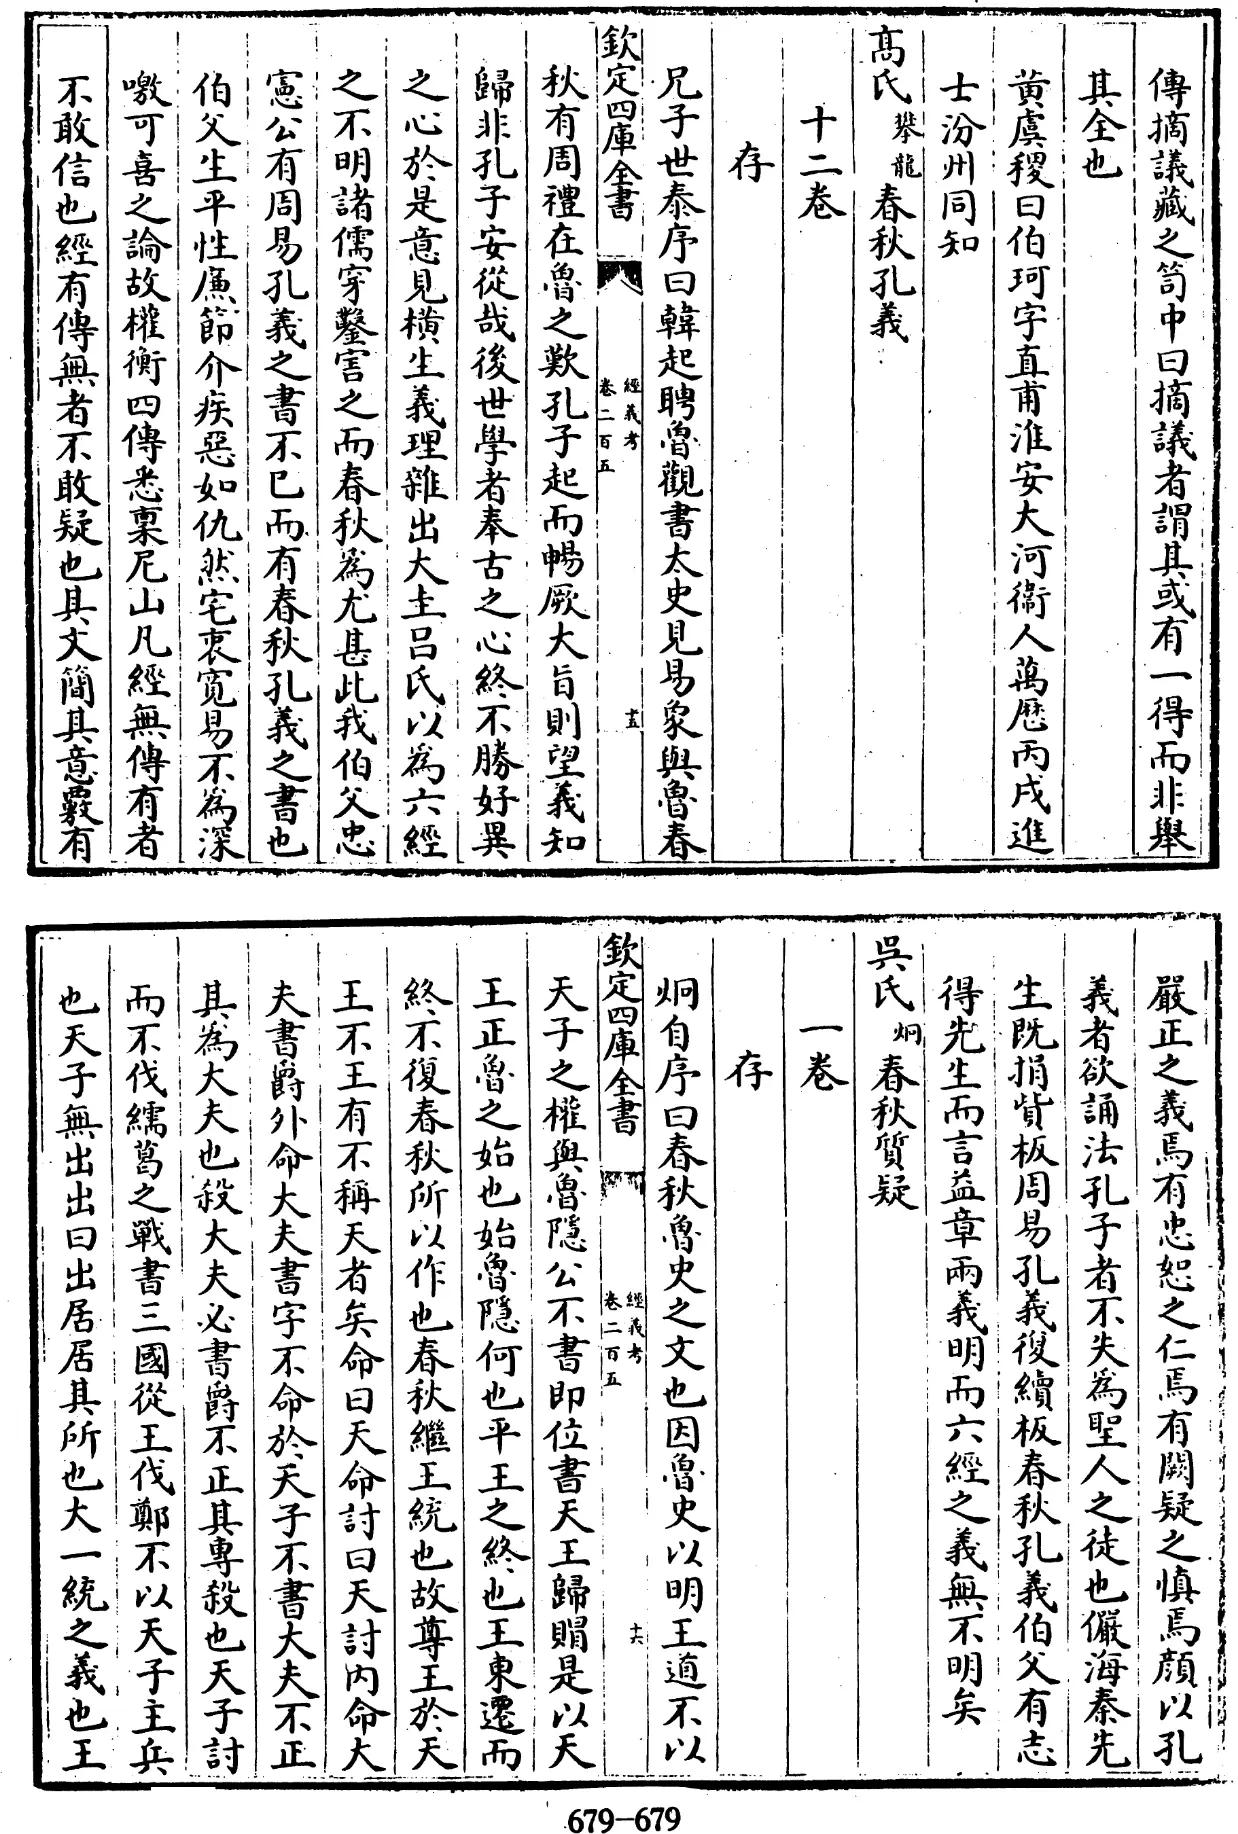 傳摘議藏之笥中曰摘議者謂其或有一得而非舉
其全也
黄虞稷曰伯珂字直甫淮安大河衞人萬厯丙戌進
士汾州同知
髙氏攀龍春秋孔義
十二卷
存
兄子世泰序曰韓起聘魯觀書太史見易象與魯春
欽定四庫全書
經義考
卷二百五
十五
秋有周禮在魯之歎孔子起而暢厥大旨則望義知
歸非孔子安從哉後世學者奉古之心終不勝好異
之心於是意見橫生義理雜出大圭吕氏以為六經
之不明諸儒穿鑿害之而春秋為尤甚此我伯父忠
憲公有周易孔義之書不已而有春秋孔義之書也
伯父生平性廉節介疾惡如仇然宅衷寛易不為深
噭可喜之論故權衡四傳悉稟尼山凡經無傳有者
不敢信也經有傳無者不敢疑也其文簡其意覈有
嚴正之義焉有忠恕之仁焉有闕疑之慎焉顔以孔
義者欲誦法孔子者不失為聖人之徒也儼海秦先
生既捐貲板周易孔義復續板春秋孔義伯父有志
得先生而言益章兩義明而六經之義無不明矣
吳氏炯春秋質疑
一卷
存
炯自序曰春秋魯史之文也因魯史以明王道不以
欽定四庫全書
經義考
卷二百五
十六
天子之權與魯隱公不書即位書天王歸賵是以天
王正魯之始也始魯隱何也平王之終也王東遷而
終不復春秋所以作也春秋繼王統也故尊王於天
王不王有不稱天者矣命曰天命討曰天討内命大
夫書爵外命大夫書字不命於天子不書大夫不正
其為大夫也殺大夫必書爵不正其專殺也天子討
而不伐繻葛之戰書三國從王伐鄭不以天子主兵
也天子無出出曰出居居其所也大一統之義也王
679-679